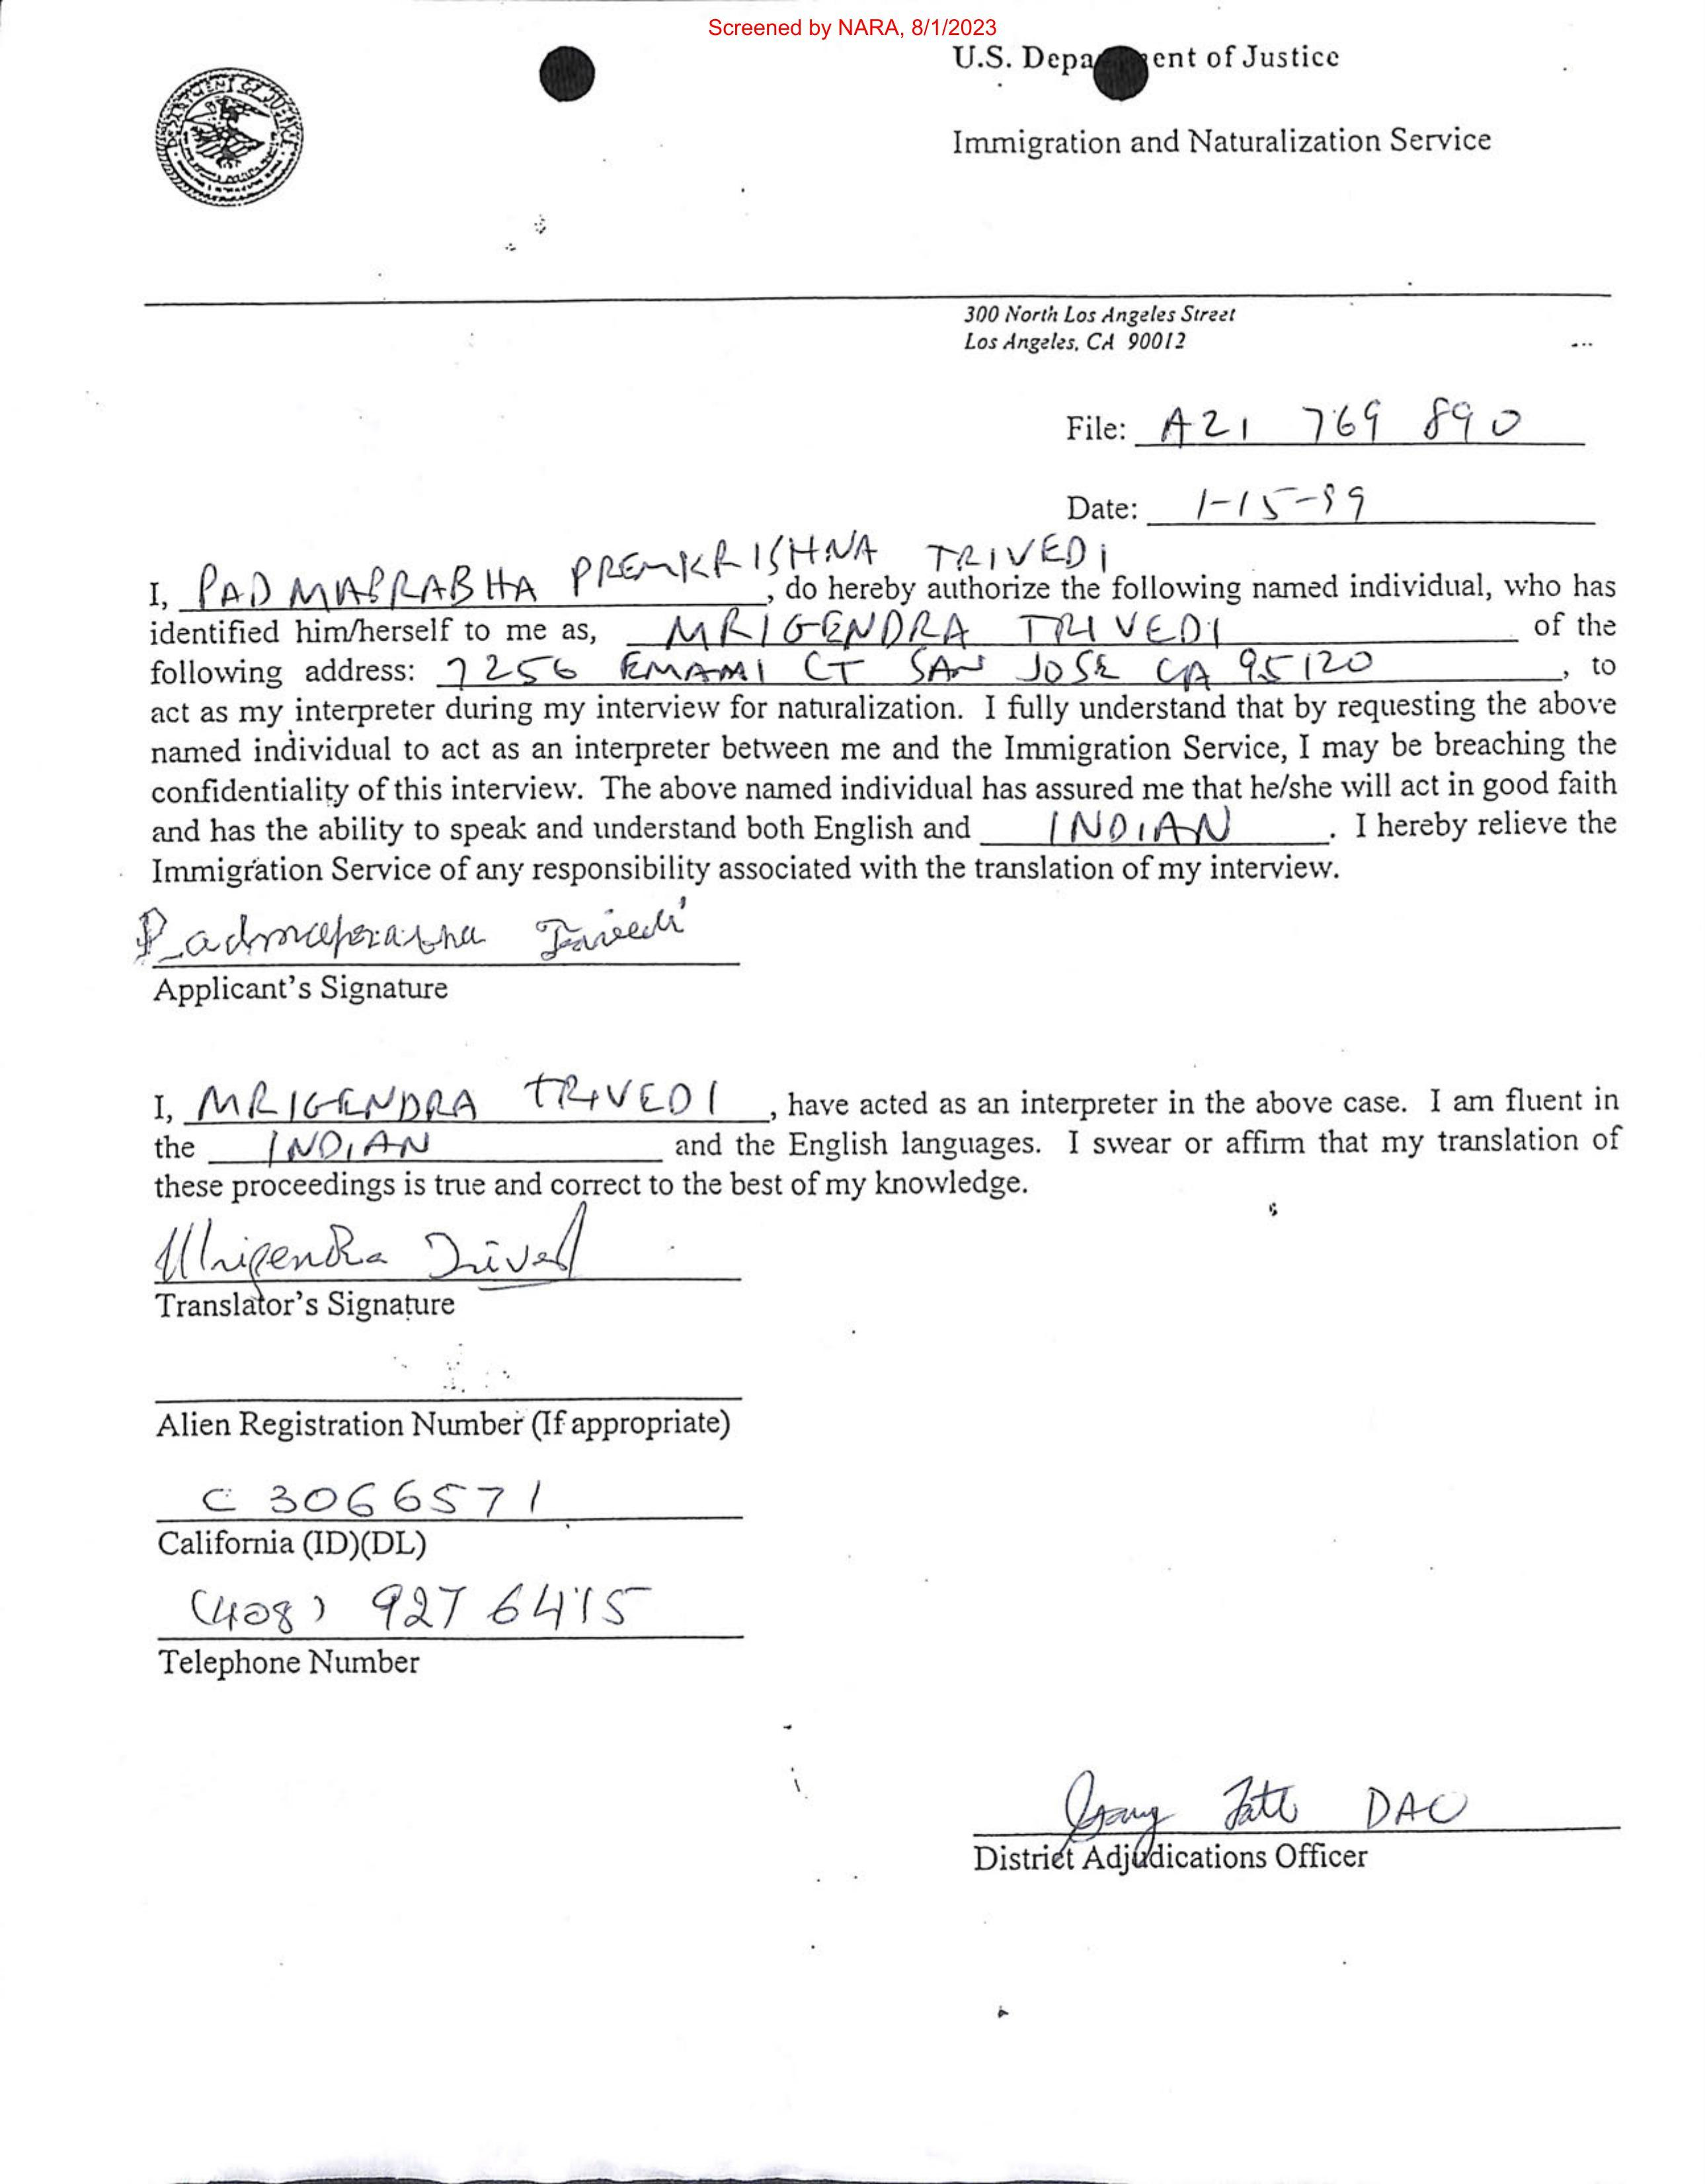 Screened by NARA, 8/1/2023
U.S. Depa ent of Justice
Immigration and Naturalization Service
300 North Los Angeles Street
Los Angeles, CA 90012
File: A21 769 890
Date: 1-15-99
PREMKRISHNA TRIVEDI
I, PADMAPRABHA , do hereby authorize the following named individual, who has
identified him/herself to me as, MRIGENDRA TRIVEDI of the
following address: 7256 EMAMI CT SAN JOSE CA 95120 , to
act as my interpreter during my interview for naturalization. I fully understand that by requesting the above
named individual to act as an interpreter between me and the Immigration Service, I may be breaching the
confidentiality of this interview. The above named individual has assured me that he/she will act in good faith
and has the ability to speak and understand both English and INDIAN . I hereby relieve the
Immigration Service of any responsibility associated with the translation of my interview.
Padmaprabha Trivedi
Applicant's Signature
I, MRIGENDRA TRIVEDI , have acted as an interpreter in the above case. I am fluent in
the INDIAN and the English languages. I swear or affirm that my translation of
these proceedings is true and correct to the best of my knowledge.
Mrigendra Trivedi
Translator's Signature
Alien Registration Number (If appropriate)
C 3066571
California (ID)(DL)
(408) 927 6415
Telephone Number
DAO
District Adjudications Officer